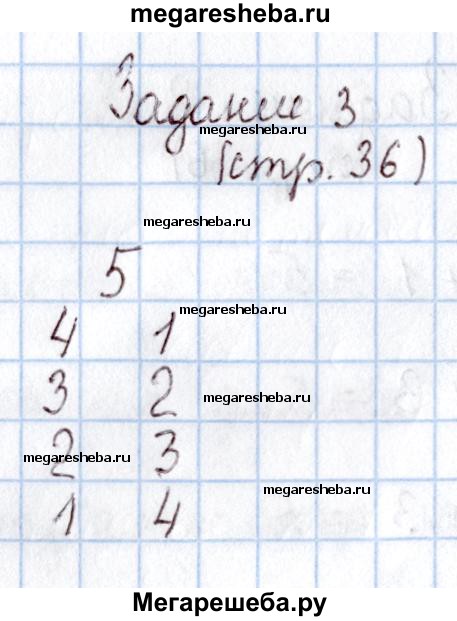 megaresheba.ru
Задание 3
megaresheba.ru
(стр. 36)
megaresheba.ru
5
megaresheba.ru
4 1
3 2
megaresheba.ru
2 3
megaresheba.ru
megaresheba.ru
1 4
Мегарешеба.ру